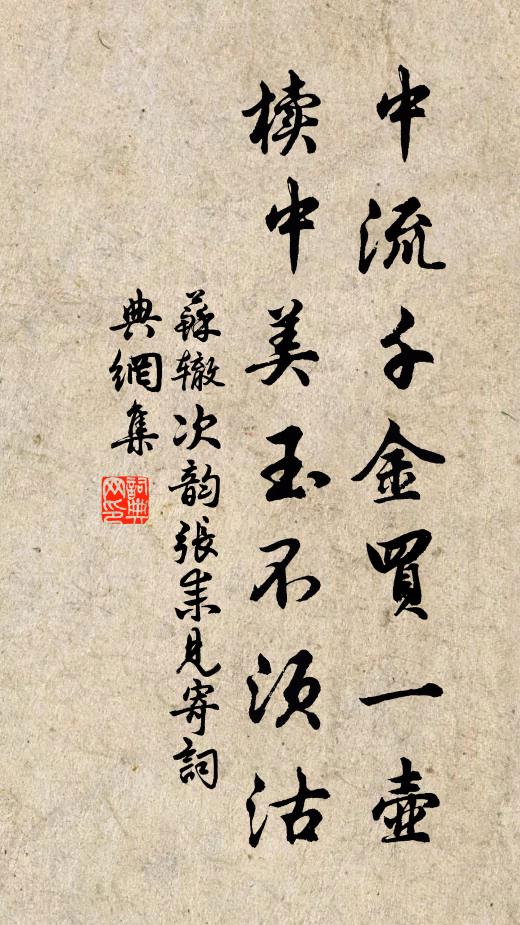 中流千金買一壺
櫝中美玉不須沽
蘇轍次韵張耒見寄詞
典網集
詞典网印